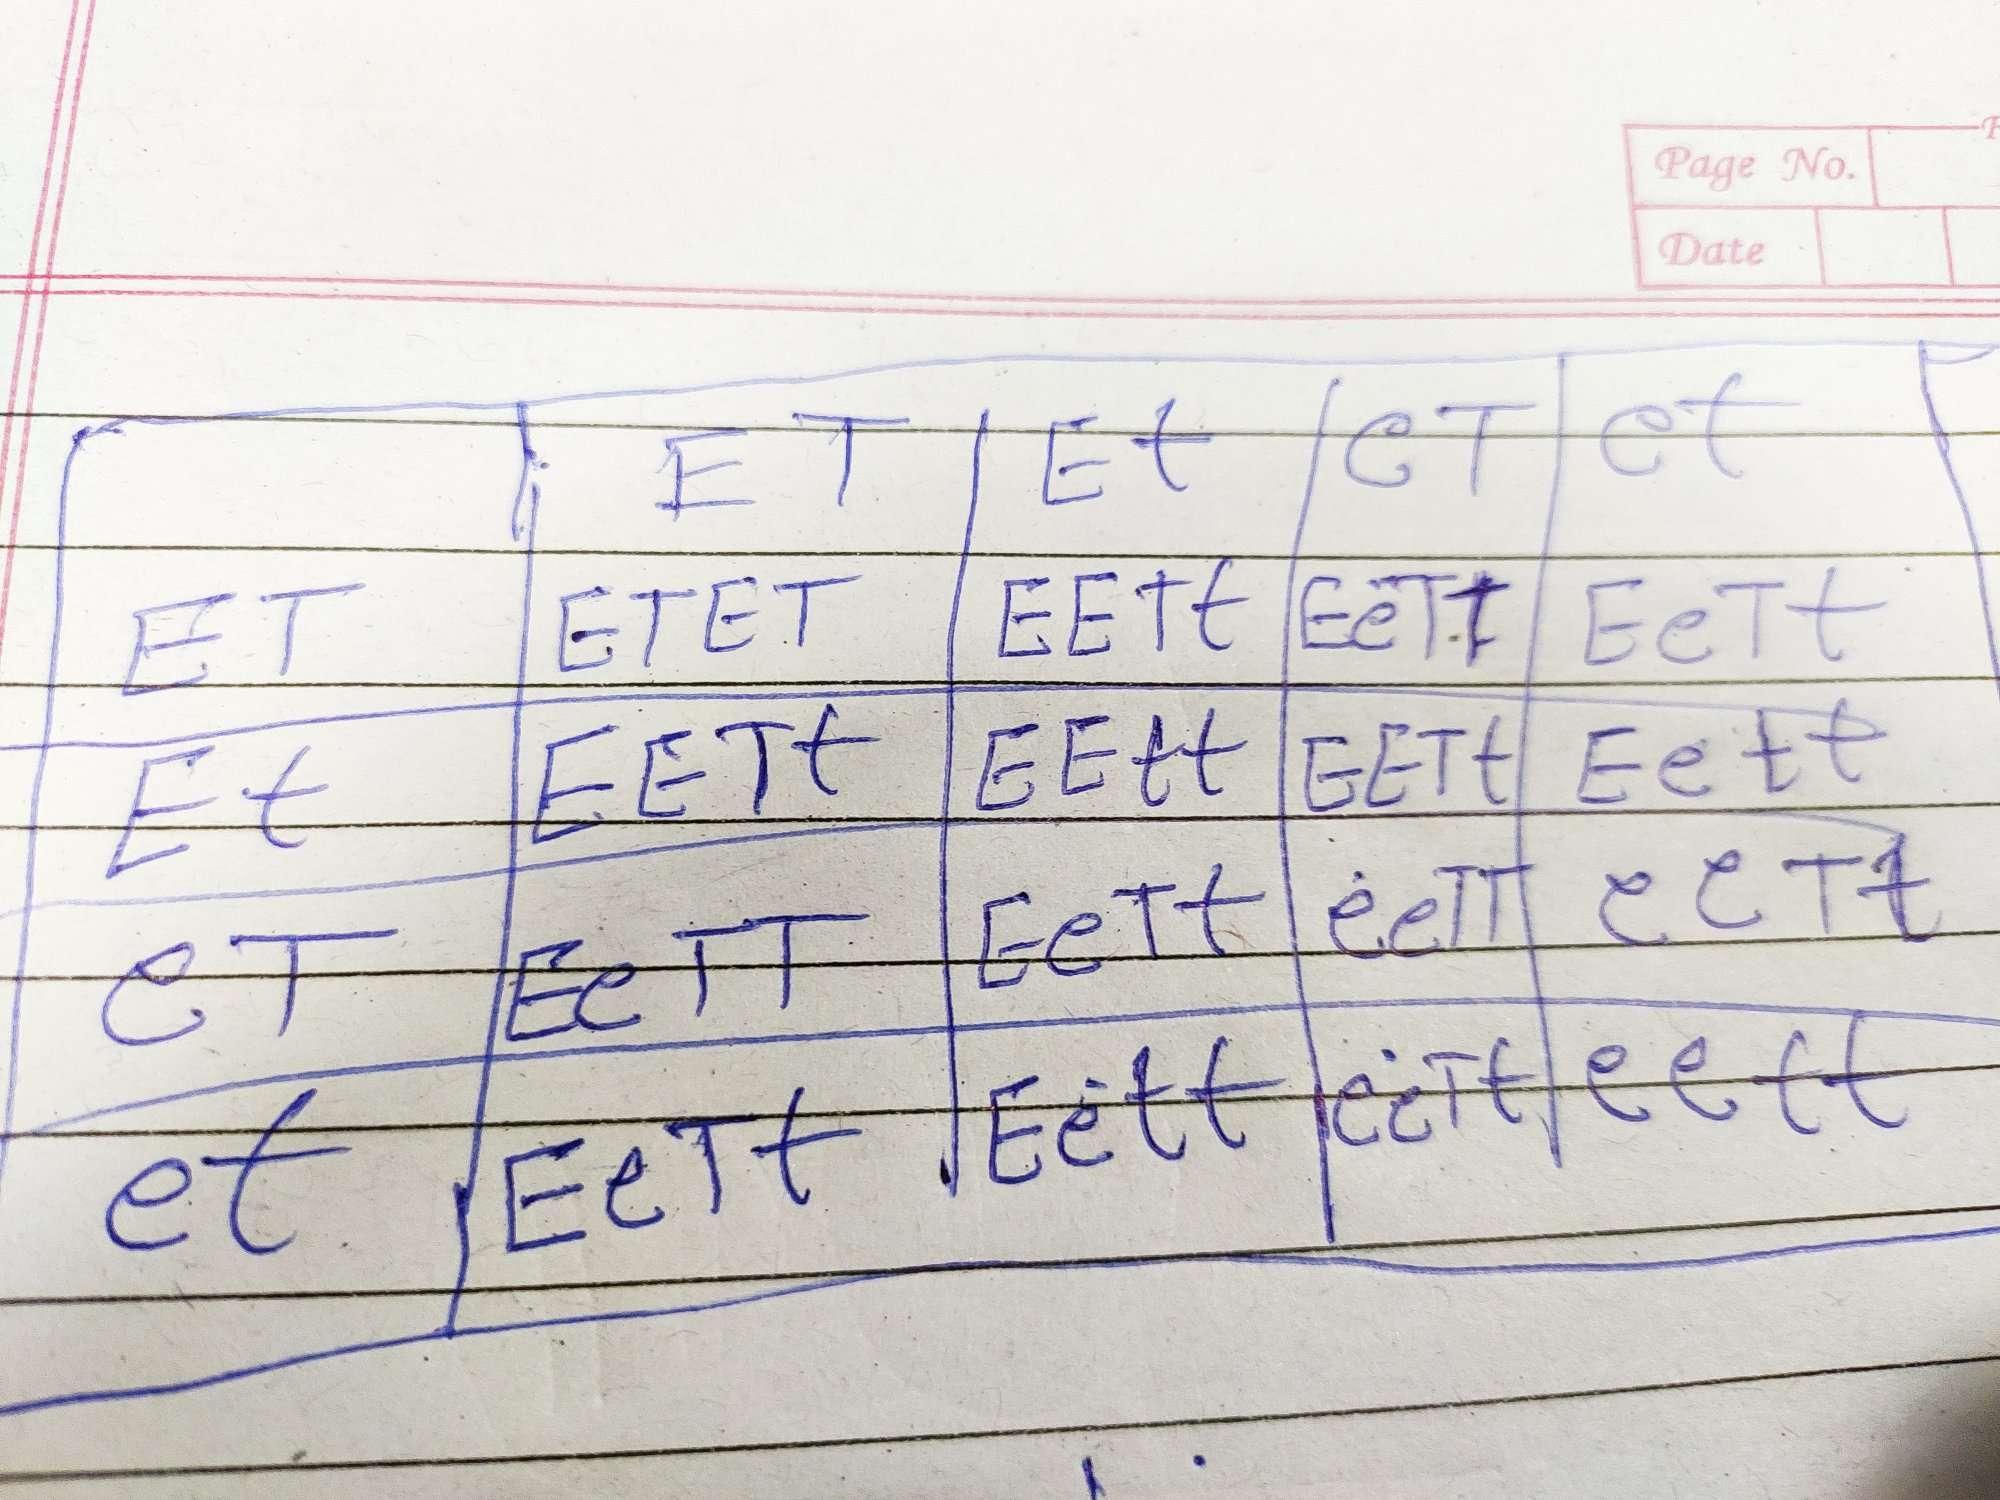 Page No.
Date
ET Et eT et
ET ETET EETt EeTt EeTt
Et EETt EEtt EETt Eett
eT EeTT EeTt eeTT eeTt
et EeTt Eett eeTt eett